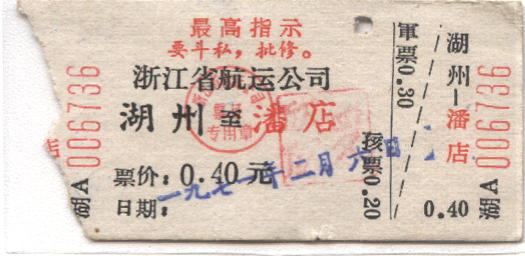 最高指示
要斗私，批修。
浙江省航运公司
湖州至潘店
票价：0.40元
日期：
一九七一年二月六日
孩票0.20
軍票0.30
湖州－潘店
0.40
006736
湖A
006736
湖A
店
专用章